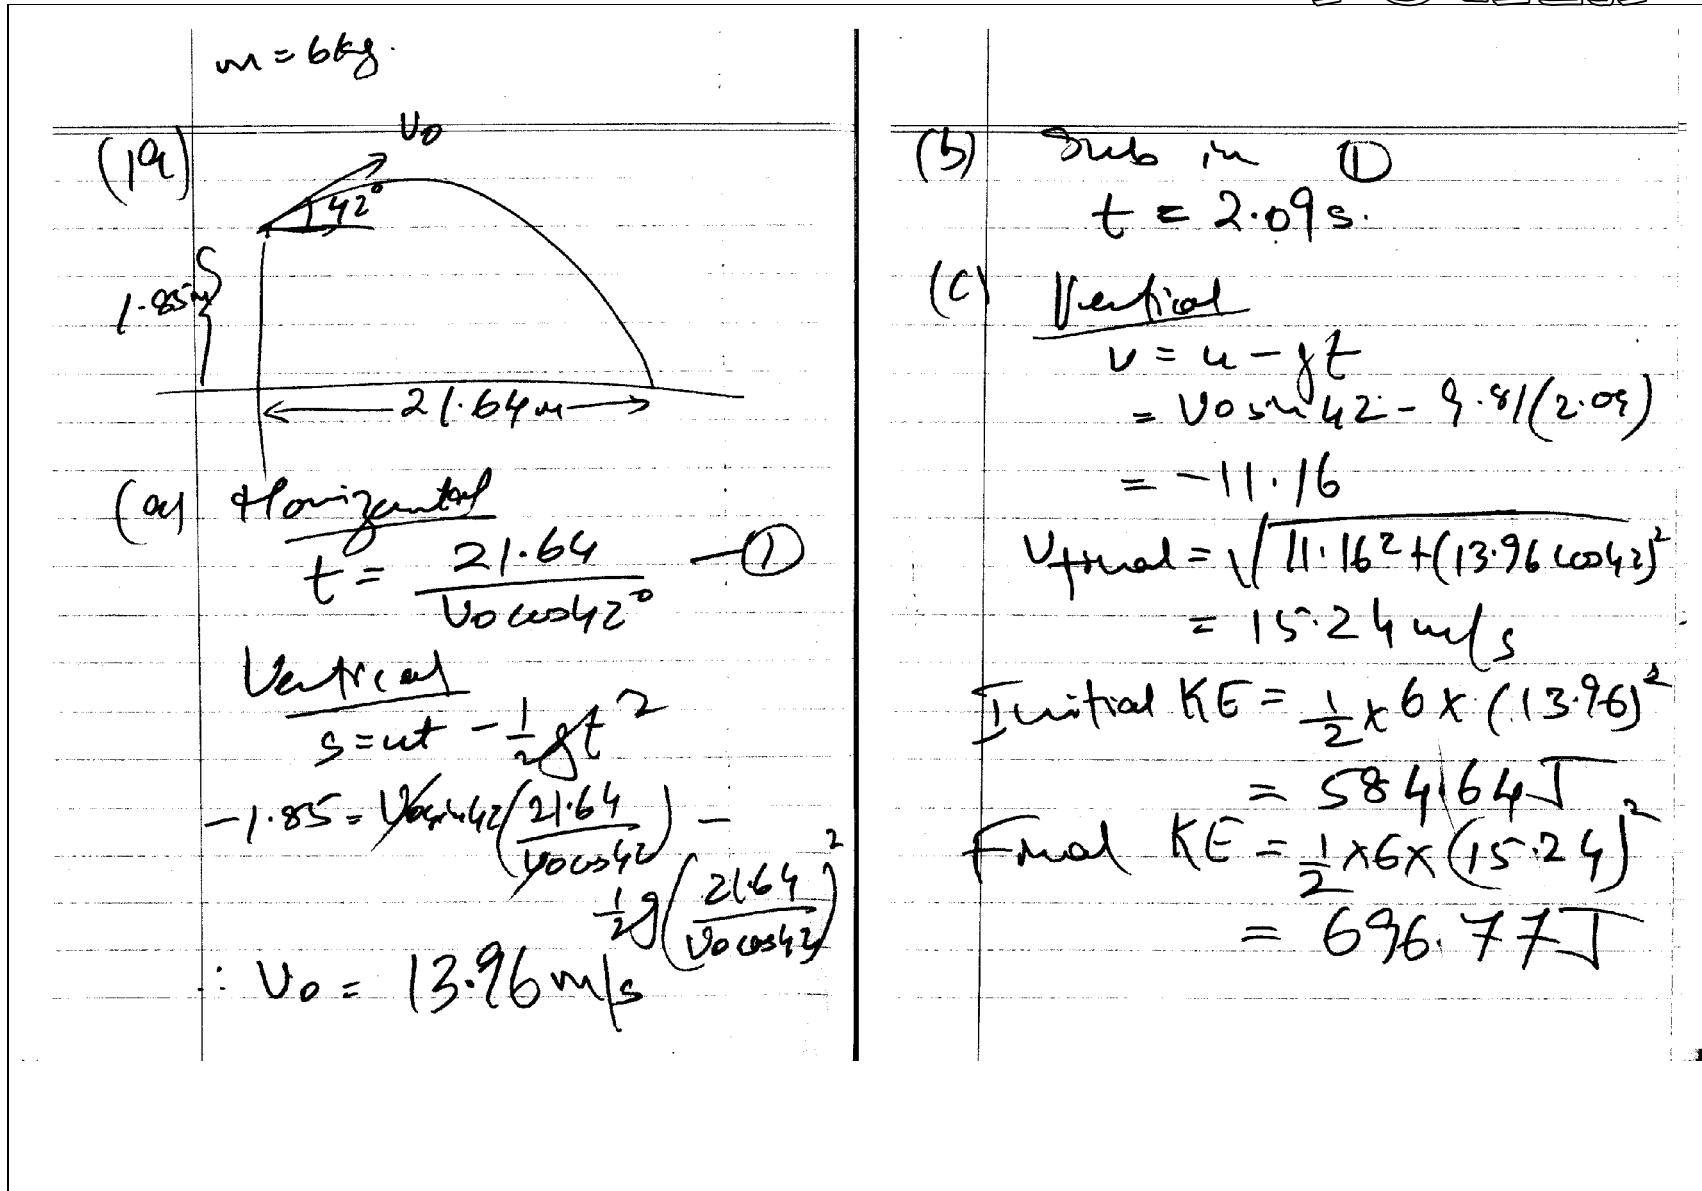 m = 6kg.
(1a)
V₀
42°
1.85m
21.64m
(a) Horizontal
t = 21.64 / V₀cos42° —①
Vertical
s = ut - ½gt²
-1.85 = V₀sin42(21.64 / V₀cos42) -
½g(21.64 / V₀cos42)²
∴ V₀ = 13.96 m/s
(b) Sub in ①
t = 2.09s.
(c) Vertical
v = u - gt
= V₀sin42 - 9.81(2.09)
= -11.16
Vfinal = √11.16² + (13.96cos42)²
= 15.24 m/s
Initial KE = ½ x 6 x (13.96)²
= 584.64J
Final KE = ½ x 6 x (15.24)²
= 696.77J